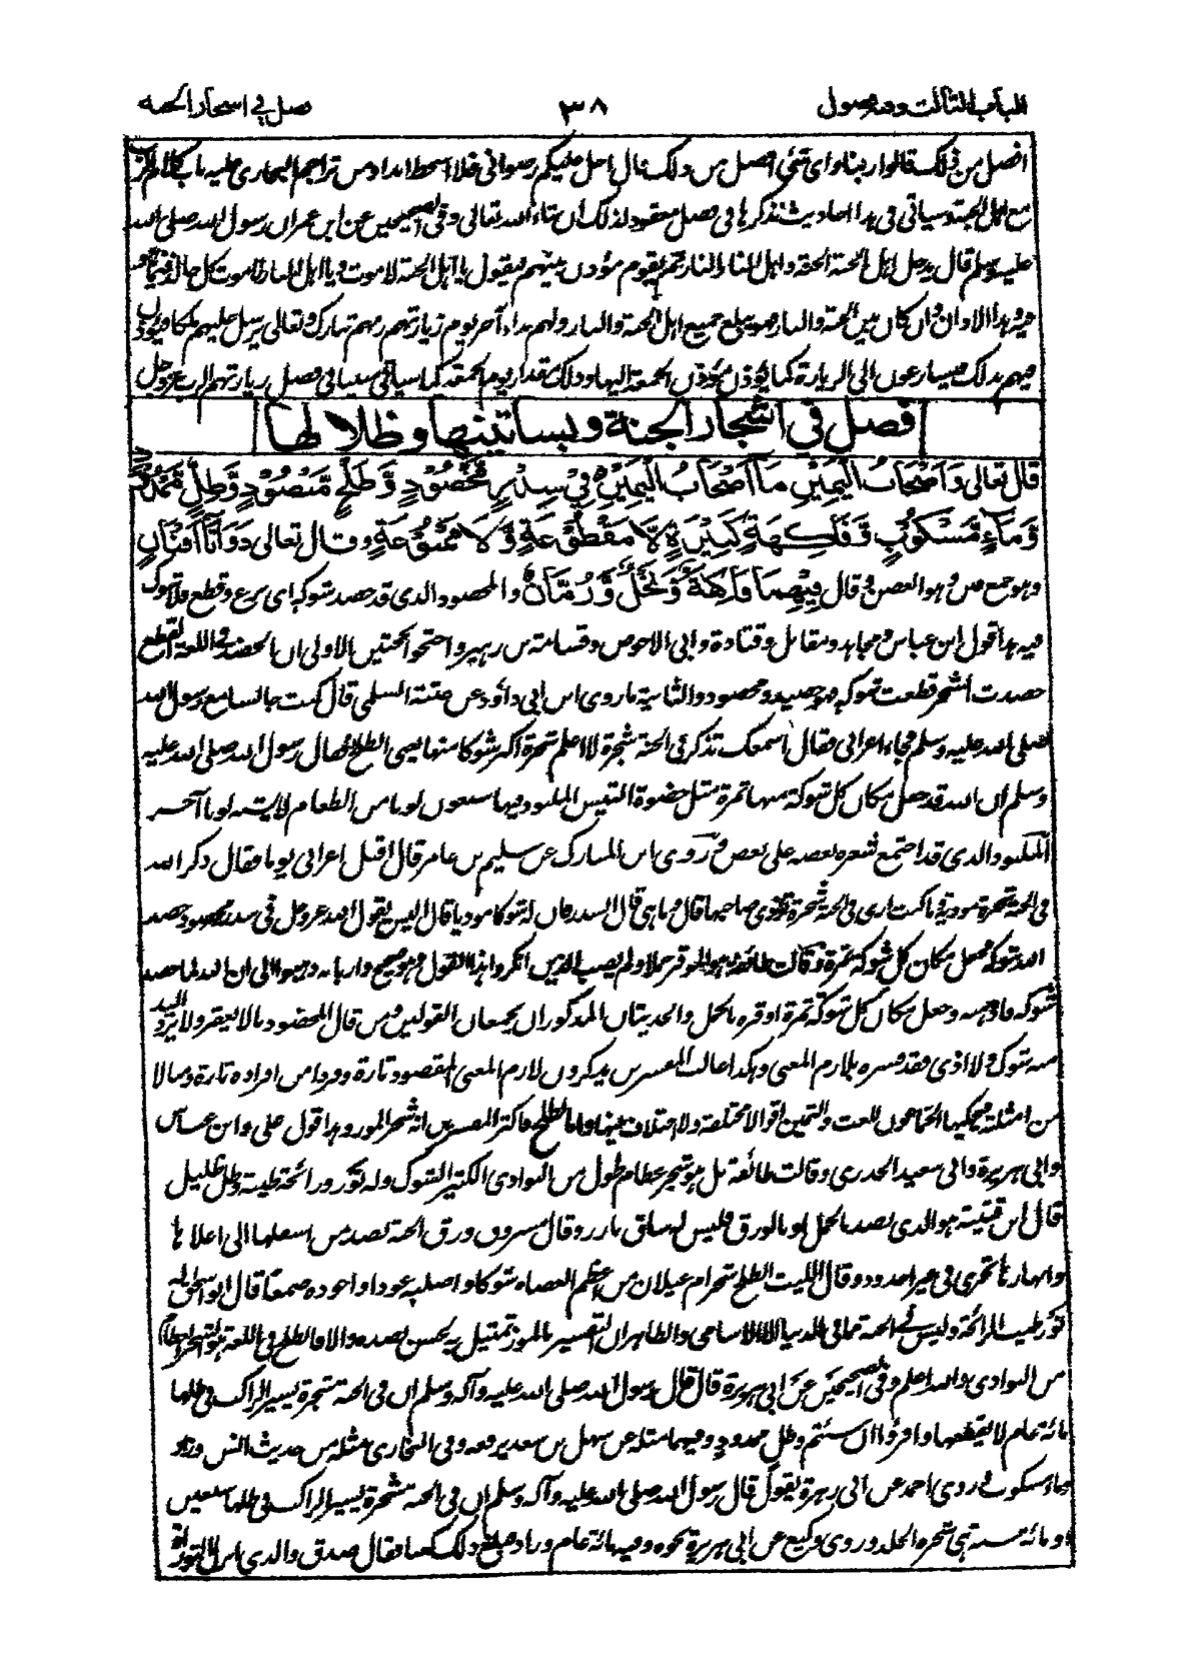 الباب الثالث وفيه فصول ٣٨ فصل في اشجار الجنة
افضل من ذلك قالوا ربنا واي شئ افضل من ذلك قال احل عليكم رضواني فلا اسخط ابدا من تراجم البخاري عليه باب كلام الرب
مع اهل الجنة وسياتي في هذا احاديث نذكرها في فصل معقود لذلك ان شاء الله تعالى وفي الصحيحين عن ابن عمر ان رسول الله صلى الله
عليه وسلم قال يدخل اهل الجنة الجنة واهل النار النار ثم يقوم مؤذن بينهم فيقول يا اهل الجنة لا موت ويا اهل النار لا موت كل خالد فيما هو
فيه وهذا الاذان وان كان بين الجنة والنار فهو يبلغ جميع اهل الجنة والنار ولهم نداء آخر يوم زيارتهم ربهم تبارك وتعالى يرسل عليهم ملكا فيؤذن
فيهم بذلك فيسارعون الى الزيارة كما يؤذن مؤذن الجمعة اليها وذلك مقدار يوم الجمعة كما سياتي مبينا في فصل زيارتهم الرب عز وجل
فصل في اشجار الجنة وبساتينها وظلالها
قال تعالى وَاَصْحَابُ الْيَمِيْنِ مَا اَصْحَابُ الْيَمِيْنِ فِيْ سِدْرٍ مَّخْضُوْدٍ وَّطَلْحٍ مَّنْضُوْدٍ وَّظِلٍّ مَّمْدُوْدٍ
وَّمَاءٍ مَّسْكُوْبٍ وَّفَاكِهَةٍ كَثِيْرَةٍ لَّا مَقْطُوْعَةٍ وَّلَا مَمْنُوْعَةٍ وقال تعالى ذَوَاتَا اَفْنَانٍ
وهو جمع فنن وهو الغصن وقال فِيْهِمَا فَاكِهَةٌ وَّنَخْلٌ وَّرُمَّانٌ والمخضود الذي قد خضد شوكه اي نزع وقطع فلا شوك
فيه هذا قول ابن عباس ومجاهد ومقاتل وقتادة وابي الاحوص وقسامة بن زهير واحتجوا بحجتين الاولى ان الخضد في اللغة القطع
خضدت الشجر قطعت شوكه فهو خضيد ومخضود والثانية ما روى ابن ابي داؤد عن عتبة السلمي قال كنت جالسا مع رسول الله
صلى الله عليه وسلم فجاء اعرابي فقال اسمعك تذكر في الجنة شجرة لا اعلم شجرة اكثر شوكا منها يعني الطلح فقال رسول الله صلى الله عليه
وسلم ان الله قد جعل مكان كل شوكة منها ثمرة مثل خصوة التيس الملبود فيها سبعون لونا من الطعام لا يشبه لونا آخر
الملبود الذي قد اجتمع شعره بعضه على بعض وروى ابن المبارك عن سليم بن عامر قال اقبل اعرابي يوما فقال ذكر الله
في الجنة شجرة موذية وما كنت ارى في الجنة شجرة توذي صاحبها قال وما هي قال السدر فان له شوكا موذيا قال اليس يقول الله عز وجل في سدر مخضود خضد
الله شوكه فجعل مكان كل شوكة ثمرة وقالت طائفة هو الموقر حملا ولم يصب الذين انكروا هذا القول وهو صحيح واربابه ذهبوا الى ان الله لما خضد
شوكه واذهبه وجعل مكان كل شوكة ثمرة اوقره بالحمل والحديثان المذكوران يجمعان القولين ومن قال المخضود ما لا يعقر ولا يرد اليد
منه شوك ولا اذى فقد فسره بلازم المعنى وهكذا غالب المفسرين يذكرون لازم المعنى المقصود تارة وفردا من افراده تارة ومثالا
من امثلته فيحكيها الجماعون للغث والثمين اقوالا مختلفة ولا اختلاف بينها واما الطلح فاكثر المفسرين انه شجر الموز وهذا قول علي وابن عباس
وابي هريرة وابي سعيد الخدري وقالت طائفة بل هو شجر عظام طول من البوادي الكثير الشوك وله نور ورائحة طيبة وظل ظليل
قال ابن قتيبة هو الذي نضد بالحمل او بالورق فليس له ساق بارز وقال مسروق ورق الجنة نضد من اسفلها الى اعلاها
وانهارها تجري في غير اخدود وقال الليث الطلح شجر ام غيلان من اعظم العضاه شوكا واصلبه عودا واجوده صمغا قال ابو اسحاق له
نور طيب الرائحة وليس في الجنة مما في الدنيا الا الاسامي والظاهر ان التفسير بالموز تمثيل به لحسن نضده والا فالطلح في اللغة هو الشجر العظام
من البوادي والله اعلم وفي الصحيحين عن ابي هريرة قال قال رسول الله صلى الله عليه وآله وسلم ان في الجنة شجرة يسير الراكب في ظلها
مائة عام لا يقطعها واقرؤا ان شئتم وظل ممدود وفيهما مثله عن سهل بن سعد يرفعه وفي البخاري مثله من حديث انس وزاد
وماء مسكوب وروى احمد عن ابي هريرة يقول قال رسول الله صلى الله عليه وآله وسلم ان في الجنة شجرة يسير الراكب في ظلها سبعين
او مائة سنة هي شجرة الخلد وروى وكيع عن ابي هريرة نحوه وفيه مائة عام وزاد فبلغ ذلك كعبا فقال صدق والذي انزل التوراة